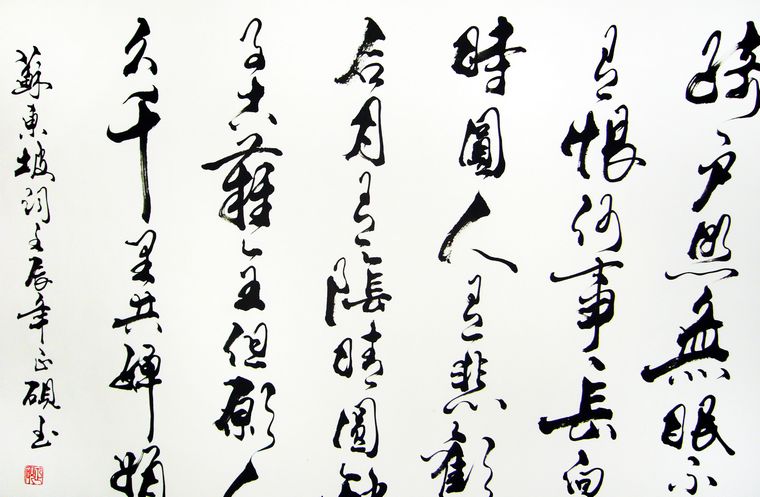 綺戶照無眠不
有恨何事長向
時圓人有悲歡
合月有陰晴圓缺
事古難全但願人
久千里共嬋娟
蘇東坡詞壬辰年正硯